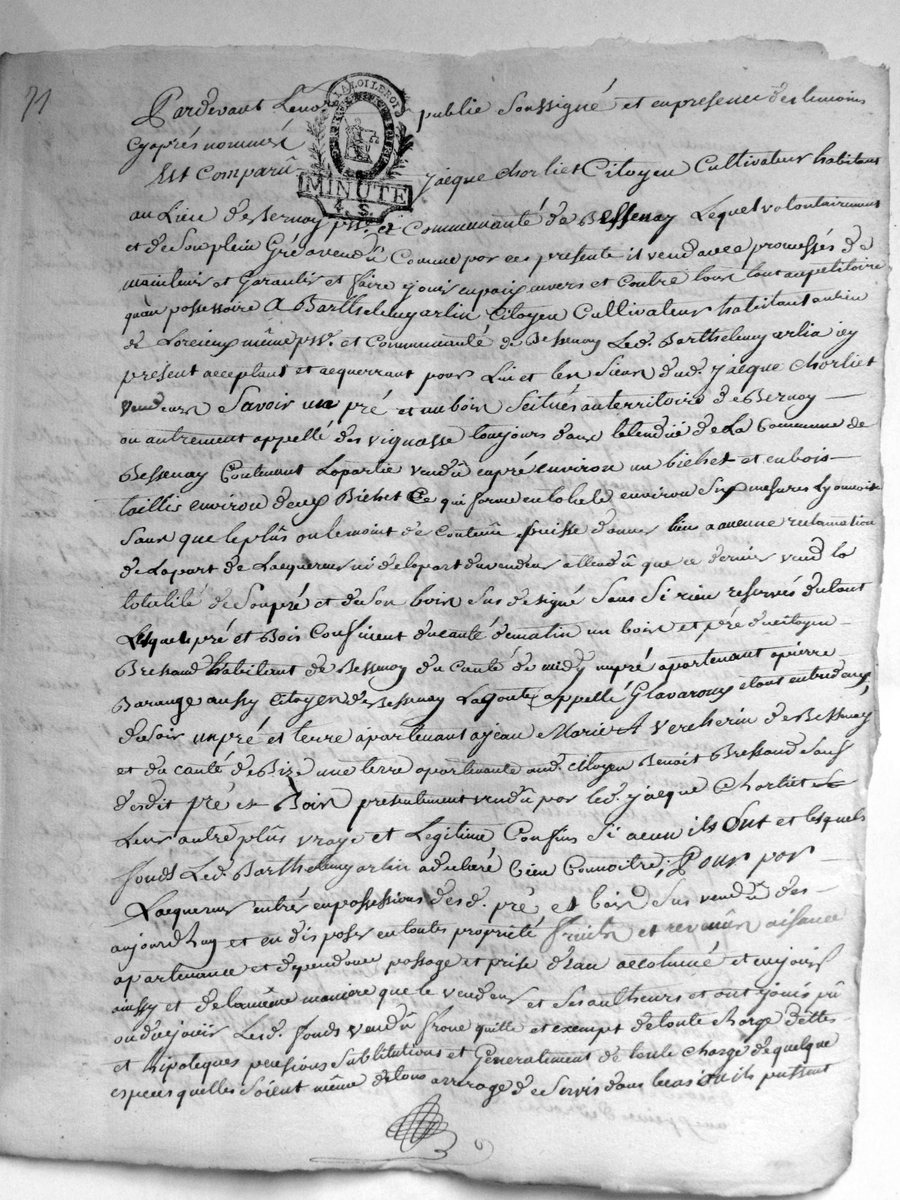 71
LA LOI LE ROI
MINUTE
4. S.
Pardevant Le no publie Soussigné et enpresence des temoins
Cyaprés nommés
Est Comparû jacque Chorliet Citoyen Cultivateur habitant
au Lieu de Bernay pss. et Communauté de Bessenay Lequel volontairement
et de Son plein Gré a vendû Comme par ces presente il vend avec promesses de
maintenir et Garantir et faire jouir enpaix envers et Contre tous tant aupetitoire
quau possessoire A Barthelemy arlin Citoyen Cultivateur habitant aulieu
de Lorcieux même pss. et Communauté de Bessenay Led. Barthelemy arlin icy
présent acceptant et acquerrant pour Lui et les Siens dud. jacque Chorliet
vendeur Savoir un pré et un bois Scitués au territoire de Bernay
ou autrement appellé des vignasse toujours dans letendüe de La Commune de
Bessenay Contenant Lapartie vendû enpré environ un bichet et enbois
taillis environ deux Bichet Ce qui forme entotale environ Six mesures Lyonnoise
Sans que leplûs ou lemoint de Contenû puisse donner lieu a aucune reclamation
de Lapart de Lacquereur ni de lapart duvendeur attendû que ce dernier vend la
totalité de Sonpré et de Son bois Sus designé Sans Si rien reservés dutout
Lesquels pré et Bois Confinent ducauté dematin un bois et pré ducitoyen
Bressand habitant de Bessenay du Cauté de midy unpré apartenant apierre
Barange aussy Citoyen de Bessenay Lagoute appellé Glavaroux etant entredeux,
de Soir unpré et terre apartenant ajean Marie Vercherin de Bessenay
et du cauté de Bize une terre apartenante aud. Citoyen Benoit Bressand Sauf
desdit pré et Bois presentement vendû par led. jacque Chorliet
Leur autre plûs vraye et Legitime Confins Si aucun ils ont et lesquels
fonds Led. Barthelemy arlin a declaré bien Connoitre; Pour par
Lacquereur entrés enpossessions desd. pré et bois Sus vendû des
aujourdhuy et en disposer entoutes propriété fruits et revenûs aisance
apartenance et dependance passage et prise deau accoutumé et enjouir
aussy et delamême maniere que le vendeur et Ses autheurs et ont jouis pû
ou dû jouir Lesd. fonds vendû franc quitte et exempt detoute charge dettes
et hipoteques pensions Substitutions et Generalement de toute charge de quelque
especes quelles Soient même de tous arrerage de Servis dans lecas ou ils pussent